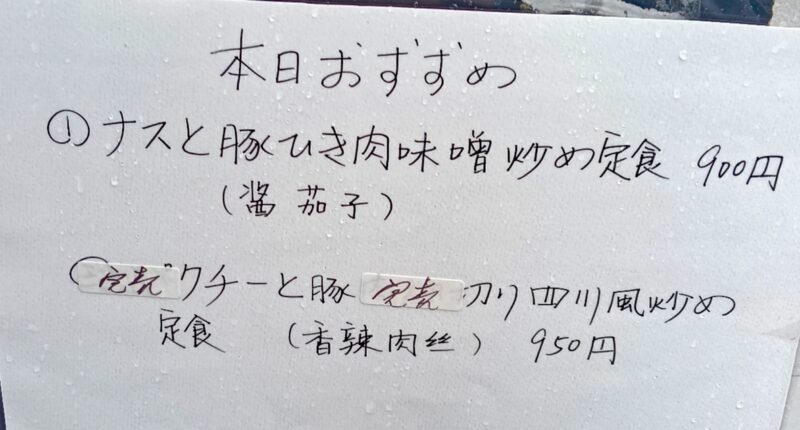 本日おずずめ
① ナスと豚ひき肉味噌炒め定食 900円
(醤茄子)
完売 クチーと豚 完売 切り四川風炒め
定食 (香辣肉丝) 950円